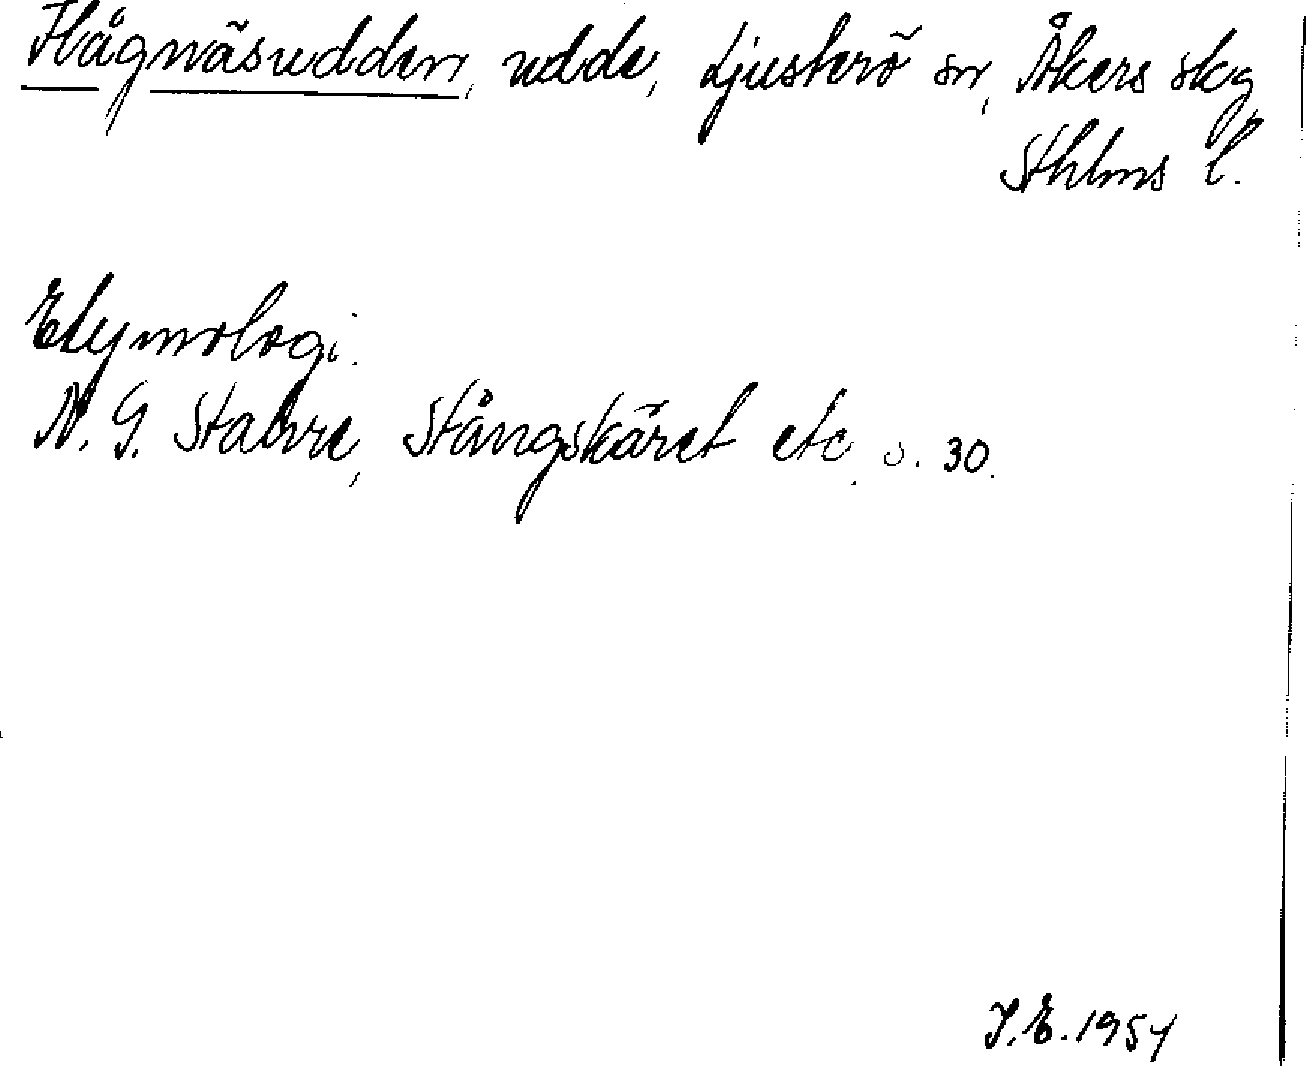 Hågnäsudden, udde, Ljusterö sn, Åkers skg,
Sthlms l.
Etymologi.
N. G. Stahre, Stångskäret etc. s. 30.
I. E. 1954